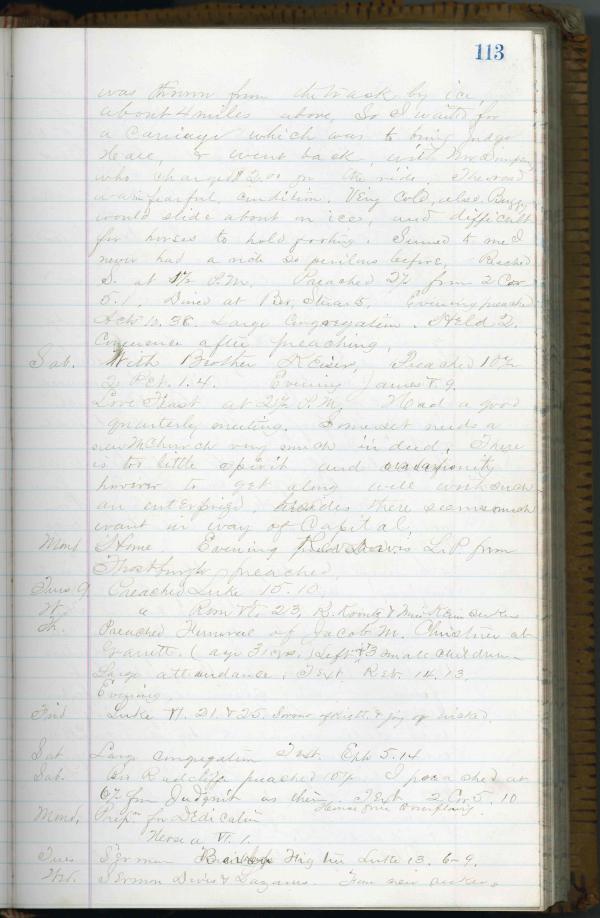 113
was thrown from the track by ice,
about 4 miles above, So I waited for
a carriage which was to bring Judge
Hall, & went back, with
who charged $2.00 for the ride. The road
was in fearful condition. Very cold, also. Buggy
would slide about on ice, and difficult
for horses to hold footing. Seemed to me I
never had a ride so perilous before, Reached
S. at 1½ P.M. Preached 2½ from 2 Cor
5.1. Dined at Evening preached
Acts 10.38. Large Congregation. Held 2.
Conference after preaching.
Sab. With Brother Keiser, Preached 10½
2 Pet. 1.4. Evening James 5.9.
Love Feast at 2½ P.M. Had a good
quarterly meeting. Somerset needs a
new M Church very much indeed. There
is too little spirit and
however to get along well with such
an enterprize, besides there seems much
want in way of Capital.
Mond Home Evening L.P. from
Frostburgh preached.
Tues 9 Preached Luke 15.10.
W. " Rom VI. 23,
Th. Preached Funeral of Jacob M. Christner at
Garrett. (age 31 yrs.) Left 3 small children
Large attendance. Text. Rev. 14.13.
Evening.
Frid Luke VI. 21 & 25. Sorrow of & joy of wicked.
Sat Large congregation Text. Eph 5.14
Sab. Bro Radcliffe preached 10½ I preached at
6½ from Judgm't as theme. Text. 2 Cor 5.10
House over overflowing.
Mond, Prep. for Dedication
Hosea VI. 1.
Tues Sermon Fig tree Luke 13. 6-9.
Wed. Sermon Dives & Lazarus. Four new seekers